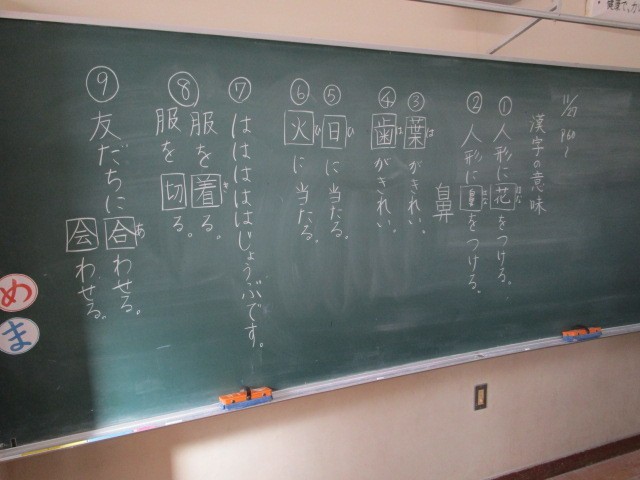 11/27 P60
漢字の意味
①人形に花をつける。
はな
②人形に鼻をつける。
はな
鼻
③葉がきれい。
は
④歯がきれい。
は
⑤日に当たる。
ひ
⑥火に当たる。
ひ
⑦はははははじょうぶです。
⑧服を着る。
き
服を切る。
⑨友だちに合わせる。
あ
会わせる。
め
ま